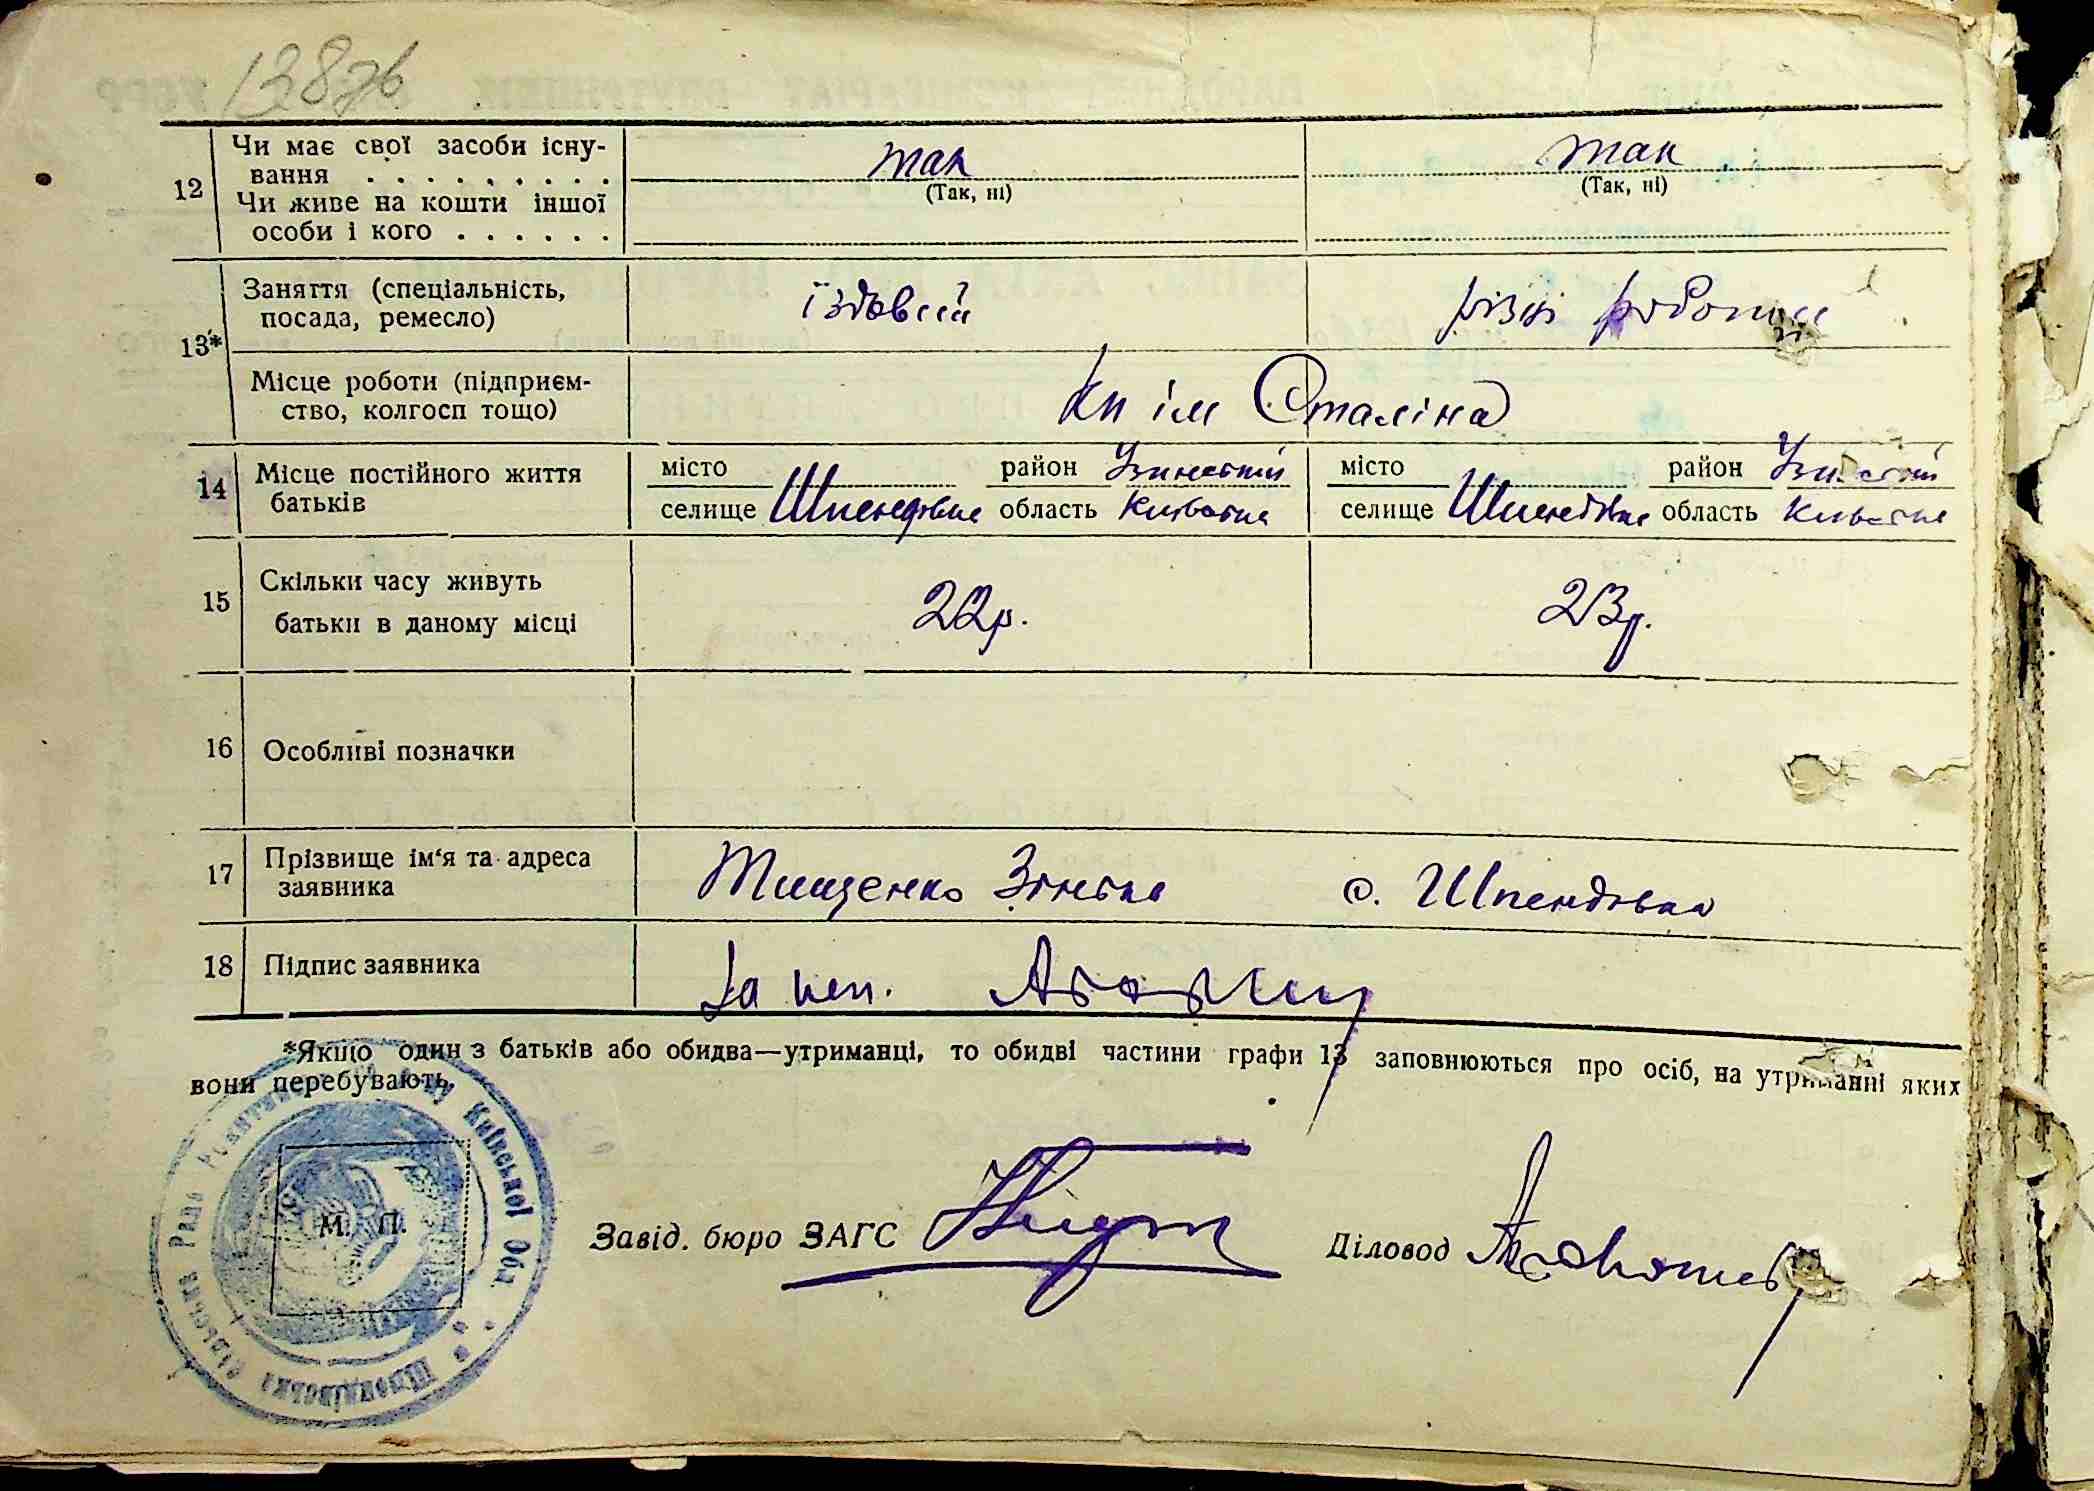 138зв
12 Чи має свої засоби існу- так так
вання . . . . . . . . . (Так, ні) (Так, ні)
Чи живе на кошти іншої
особи і кого . . . . . .
13* Заняття (спеціальність, їздовий різні роботи
посада, ремесло)
Місце роботи (підприєм- Кп ім Сталіна
ство, колгосп тощо)
14 Місце постійного життя місто район Узинський місто район Узинський
батьків селище Шпендівка область Київська селище Шпендівка область Київська
15 Скільки часу живуть 22р. 23р.
батьки в даному місці
16 Особливі позначки
17 Прізвище ім'я та адреса Тищенко Зінька с. Шпендівка
заявника
18 Підпис заявника За неп.
*Якщо один з батьків або обидва—утриманці, то обидві частини графи 13 заповнюються про осіб, на утриманні яких
вони перебувають.
М. П.
Завід. бюро ЗАГС Діловод
Шпендівська сільська Рада Київської Обл.